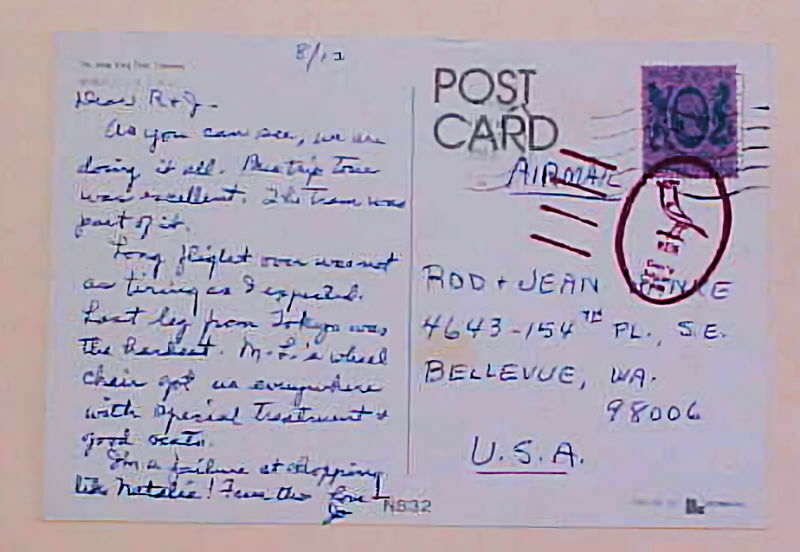 8/12
Dear R+J-
As you can see, we are
doing it all. Bus trip Tour
was excellent. The Tram was
part of it.
Long flight over was not
as tiring as I expected.
Last leg from Tokyo was
the hardest. M-L's wheel
chair got us everywhere
with special treatment &
good seats.
I'm a failure at shopping
like Natalie!
Love
Jo
N832
POST
CARD
AIRMAIL
ROD + JEAN
4643-154TH PL., S.E.
BELLEVUE, WA.
98006
U.S.A.